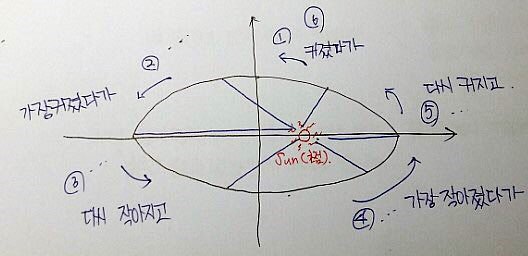 ① ⑥
커졌다가
② ...
가장커졌다가
③ ...
다시 작아지고
Sun(초점).
④ ...
가장 작아졌다가
다시 커지고
⑤ ...